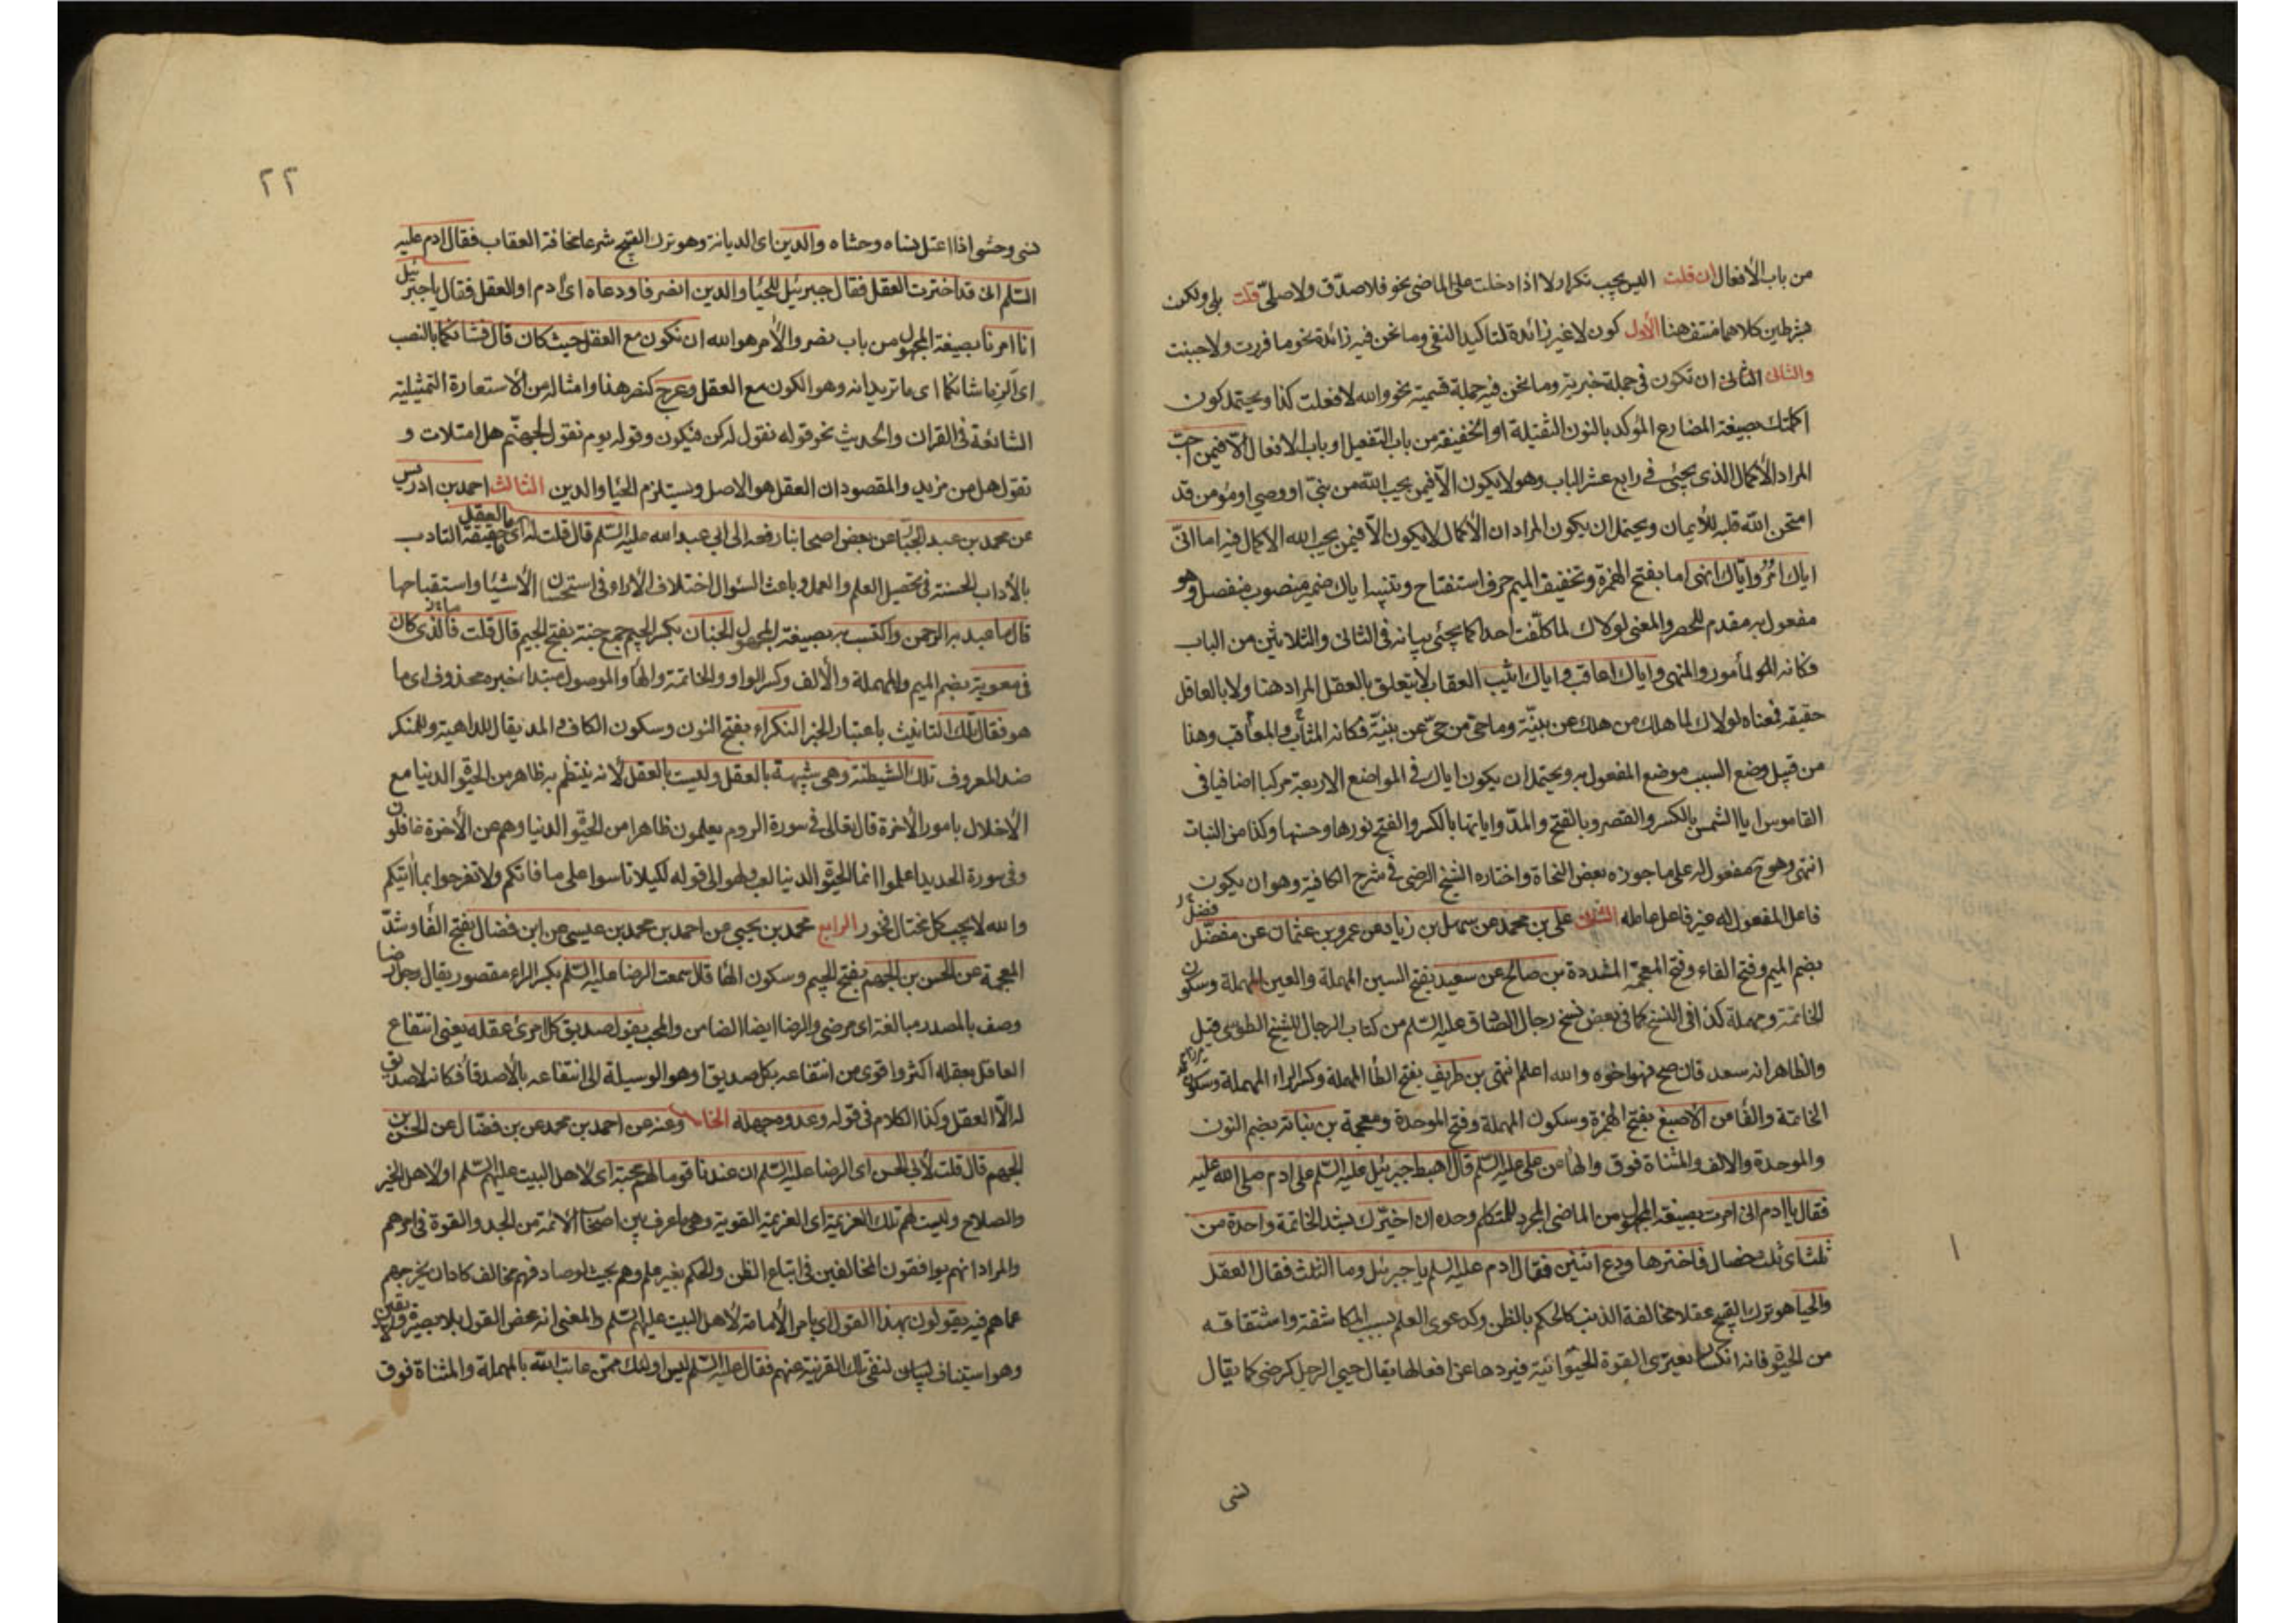 من باب الأفعال ان قلت اليس يجب تكرار لا اذا دخلت على الماضى نحو فلا صدّق ولا صلّى قلت بلى ولكن
بشرطين كلاهما منتف هنا الأول كون لا غير زائدة لتاكيد النفى وما نحن فيه زائدة نحو ما قررت ولا جبنت
والثانى الثانى ان تكون فى جملة خبرية وما نحن فيه جملة قسمية نحو والله لا فعلت كذا ويحتمل كون
اكملتك بصيغة المضارع المؤكد بالنون الثقيلة او الخفيفة من باب التفعيل او باب الافعال الّا فيمن احبّ
المراد الأكمال الذى يجئ فى رابع عشر الباب وهو لا يكون الّا فيمن يحب الله من نبىّ او وصى او مؤمن قد
امتحن الله قلبه للأيمان ويحتمل ان يكون المراد ان الأكمال لا يكون الّا فيمن يحب الله الاكمال فيه اما انّى
اياك امُرُ واياك انهى اما بفتح الهمزة وتخفيف الميم حرف استفتاح وتنبيه اياك ضمير منصوب منفصل وهو
مفعول به مقدم للحصر والمعنى لولاك لما كلّفت احدا كما يجئ بيانه فى الثانى والثلاثين من الباب
فكانه المأمور والمنهى واياك اعاقب واياك اثيب العقاب لا يتعلق بالعقل المراد هنا ولا بالعاقل
حقيقة فمعناه لولاك لما هلك من هلك عن بيّنة وما حىّ من حىّ عن بيّنة فكانه المثاب والمعاقب وهذا
من قبيل وضع السبب موضع المفعول به ويحتمل ان يكون اياك فى المواضع الاربعة مركبا اضافيا فى
القاموس ايا الشمس بالكسر والقصر وبالفتح والمدّ واياتها بالكسر والفتح نورها وحسنها وكذا من النبات
انتهى وهو ح مفعول له على ما جوزه بعض النحاة واختاره الشيخ الرضى فى شرح الكافية وهو ان يكون
فاعل المفعول له غير فاعل عامله الثانى على بن محمد عن سهل بن زياد عن عمرو بن عثمان عن مفضّل
بضم الميم وفتح الفاء وفتح المعجمة المشددة بن صالح عن سعيد بفتح السين المهملة والعين المهملة وسكون
الخاتمة ومهملة كذا فى النسخ كما فى بعض نسخ رجال الصادق عليه السّلم من كتاب الرجال للشيخ الطوسى قيل
والظاهر انه سعد فان صح فهو اخوه والله اعلم انتهى بن طريف بفتح الطا المهملة وكسر الراء المهملة وسكون
الخاتمة والفا عن الأصبغ بفتح الهمزة وسكون المهملة وفتح الموحدة ومعجمة بن نباتة بضم النون
والموحدة والالف والمثناة فوق والها عن على عليه السّلم قال اهبط جبرئيل عليه السّلم على ادم صلى الله عليه
فقال يا ادم انى امرت بصيغة المجهول من الماضى المجرد للمتكلم وحده ان اخيّرك بشد الخاتمة واحدة من
ثلث اى ثلث خصال فاخترها ودع اثنين فقال ادم عليه السلم يا جبرئيل وما الثلث فقال العقل
والحيا هو ترك القبيح عقلا مخالفة الذنب كالحكم بالظن وكدعوى العلم بسبب المكاشفة واشتقاقه
من الحيوة فانه انكسار يعترى القوة الحيوانية فيردها عن افعالها يقال حيى الرجل كرضى كما يقال
نسى
٢٢
نسى وحشى اذا اعتل نساه وحشاه والدين اى الديانة وهو ترك القبيح شرعا مخافة العقاب فقال ادم عليه
السّلم انى قد اخترت العقل فقال جبرئيل للحيا والدين انصرفا ودعاه اى ادم او العقل فقالا يا جبرئيل
انا امرنا بصيغة المجهول من باب نصر والأمر هو الله ان نكون مع العقل حيث كان قال فشانكما بالنصب
اى الزما شانكما اى ما تريدانه وهو الكون مع العقل وعرج كنصر هذا وامثاله من الاستعارة التمثيلية
الشائعة فى القران والحديث نحو قوله نقول له كن فيكون وقوله يوم نقول لجهنّم هل امتلات و
تقول هل من مزيد والمقصود ان العقل هو الاصل ويستلزم الحيا والدين الثالث احمد بن ادريس
عن محمد بن عبد الجبّار عن بعض اصحابنا رفعه الى ابى عبد الله عليه السّلم قال قلت له ما العقل اى ما حقيقة التادب
بالأداب الحسنة فى تحصيل العلم والعمل وباعث السؤال اختلاف الأراء فى استحسان الأشيا واستقباحها
قال ما عبد به الرحمن واكتسب به بصيغة المجهول الجنان بكسر الجيم جمع جنة بفتح الجيم قال قلت فالذى كان
فى معوية بضم الميم والمهملة والألف وكسر الواو والخاتمة والها والموصول مبتدا خبره محذوف اى ما
هو فقال تلك التانيث باعتبار الخبر النكراء بفتح النون وسكون الكاف والمد يقال للداهية وللمنكر
ضد المعروف تلك الشيطنة وهى شبيهة بالعقل وليست بالعقل لأنه ينتظم به ظاهر من الحيوة الدنيا مع
الأخلال بامور الأخرة قال تعالى فى سورة الروم يعلمون ظاهرا من الحيوة الدنيا وهم عن الأخرة غافلون
وفى سورة الحديد اعلموا انما الحيوة الدنيا لعب ولهو الى قوله لكيلا تاسوا على ما فاتكم ولا تفرحوا بما اتيكم
والله لا يحب كل مختال فخور الرابع محمد بن يحيى عن احمد بن محمد بن عيسى عن ابن فضال بفتح الفا وشدّ
المعجمة عن الحسن بن الجهم بفتح الجيم وسكون الها قال سمعت الرضا عليه السّلم بكسر الراء مقصور يقال رجل رضا
وصف بالمصدر مبالغة اى مرضى والرضا ايضا الضامن والمحب يقول صديق كل امرئ عقله يعنى انتفاع
العاقل بعقله اكثر واقوى من انتفاعه بكل صديق او هو الوسيلة الى انتفاعه بالأصدقا فكانه لا صديق
له الّا العقل وكذا الكلام فى قوله وعدوه جهله الخامس وعنه عن احمد بن محمد عن بن فضال عن الحسن بن
الجهم قال قلت لأبى الحسن اى الرضا عليه السّلم ان عندنا قوما لهم محبة اى لاهل البيت عليهم السّلم او لاهل الخير
والصلاح وليست لهم تلك العزيمة اى العزيمة القوية وهى ما عرف بين اصحاب الائمة من الجد والقوة فى امرهم
والمراد انهم يوافقون المخالفين فى اتباع الظن والحكم بغير علم وهم بحيث لو صادفهم مخالف كاد ان يخرجهم
عما هم فيه يقولون بهذا القول اى بامر الأمامة لأهل البيت عليهم السّلم والمعنى انه محض القول بلا بصيرة ولا يقين
وهو استيناف لبيان لنفى تلك القرينة عنهم فقال عليه السّلم ليس اولئك ممّن عاتب الله بالمهملة والمثناة فوق